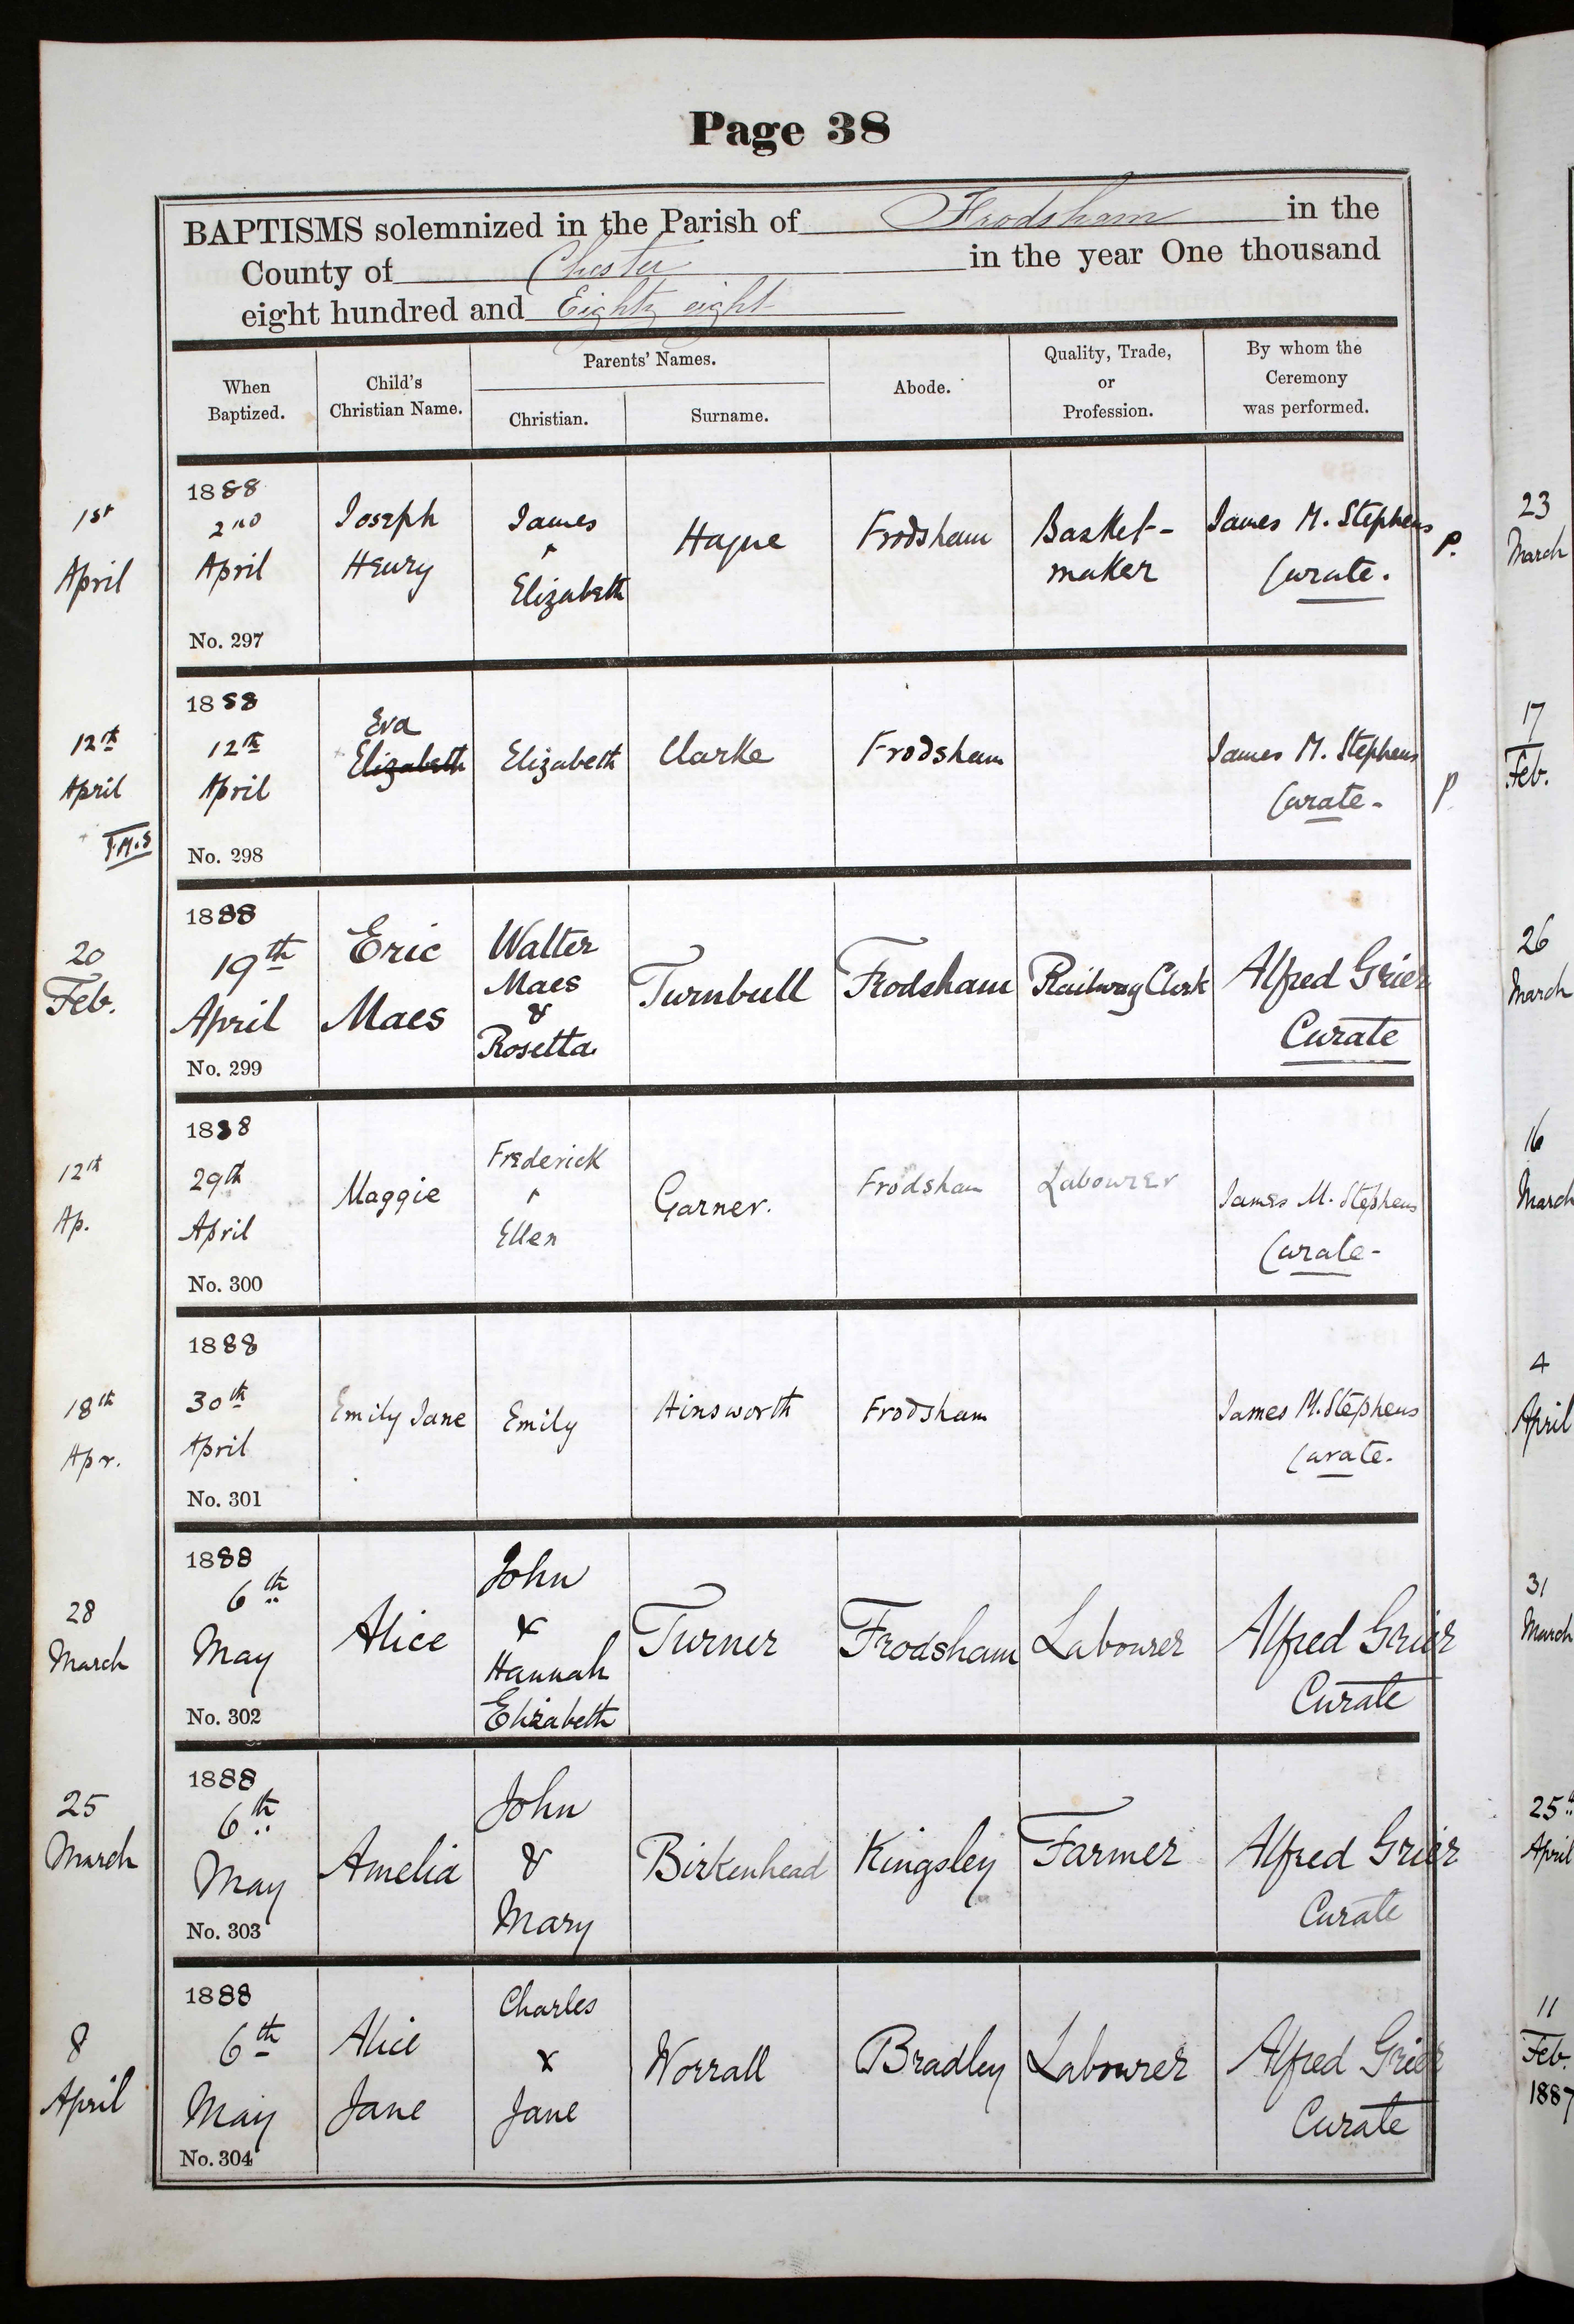 Page 38
BAPTISMS solemnized in the Parish of Frodsham in the
County of Chester in the year One thousand
eight hundred and Eighty eight
When Baptized.
Child's Christian Name.
Parents' Names.
Christian.
Surname.
Abode.
Quality, Trade, or Profession.
By whom the Ceremony was performed.
1st
April
1888
2nd
April
No. 297
Joseph
Henry
James
&
Elizabeth
Hague
Frodsham
Basket-
maker
James M. Stephens
Curate.
P.
12th
April
J.M.S
1888
12th
April
No. 298
Eva
Elizabeth
Elizabeth
Clarke
Frodsham
James M. Stephens
Curate-
P.
20
Feb.
1888
19th
April
No. 299
Eric
Maes
Walter
Maes
&
Rosetta
Turnbull
Frodsham
Railway Clerk
Alfred Grier
Curate
12th
Ap.
1888
29th
April
No. 300
Maggie
Frederick
&
Ellen
Garner.
Frodsham
Labourer
James M. Stephens
Curate-
18th
Apr.
1888
30th
April
No. 301
Emily Jane
Emily
Ainsworth
Frodsham
James M. Stephens
Curate.
28
March
1888
6th
May
No. 302
Alice
John
&
Hannah
Elizabeth
Turner
Frodsham
Labourer
Alfred Grier
Curate
25
March
1888
6th
May
No. 303
Amelia
John
&
Mary
Birkenhead
Kingsley
Farmer
Alfred Grier
Curate
8
April
1888
6th
May
No. 304
Alice
Jane
Charles
&
Jane
Worrall
Bradley
Labourer
Alfred Grier
Curate
23
March
17
Feb.
26
March
16
March
4
April
31
March
25th
April
11
Feb.
1887